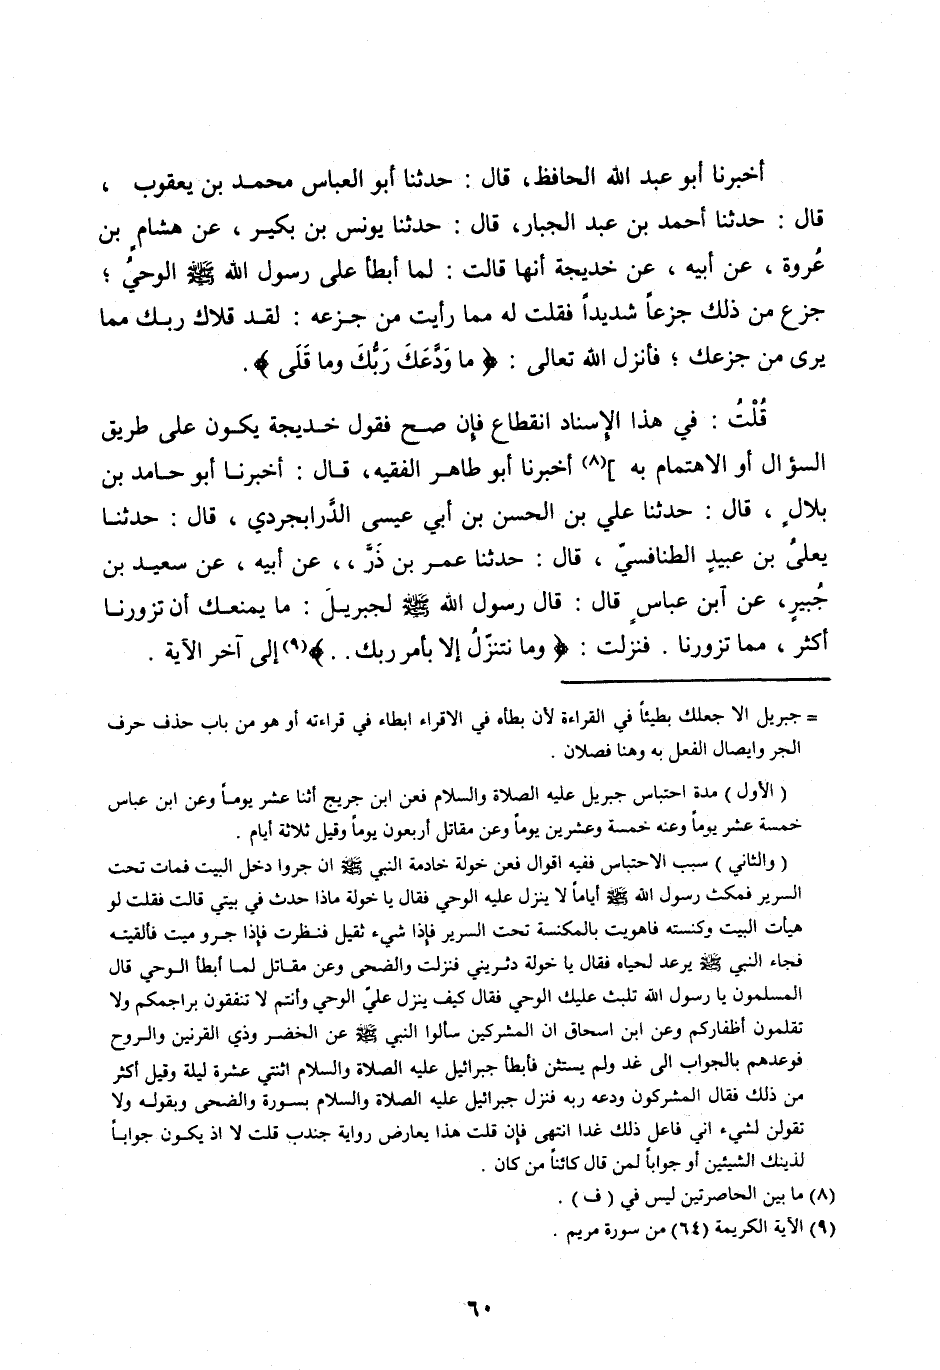 أخبرنا أبو عبد الله الحافظ، قال : حدثنا أبو العباس محمد بن يعقوب ،
قال : حدثنا أحمد بن عبد الجبار، قال : حدثنا يونس بن بكير ، عن هشام بن
عُروة ، عن أبيه ، عن خديجة أنها قالت : لما أبطأ على رسول الله ﷺ الوحيُ ؛
جزع من ذلك جزعاً شديداً فقلت له مما رأيت من جزعه : لقد قلاك ربك مما
يرى من جزعك ؛ فأنزل الله تعالى : ﴿ ما وَدَّعَكَ رَبُّكَ وما قَلَى ﴾.
قُلْتُ : في هذا الإسناد انقطاع فإن صح فقول خديجة يكون على طريق
السؤال أو الاهتمام به ](٨) أخبرنا أبو طاهر الفقيه، قال : أخبرنا أبو حامد بن
بلالٍ ، قال : حدثنا علي بن الحسن بن أبي عيسى الدَّرابجردي ، قال : حدثنا
يعلىُ بن عبيدٍ الطنافسيّ ، قال : حدثنا عمر بن ذَرَّ ،، عن أبيه ، عن سعيد بن
جُبيرٍ، عن آبن عباسٍ قال : قال رسول الله ﷺ لجبريلَ : ما يمنعك أن تزورنا
أكثر ، مما تزورنا . فنزلت : ﴿ وما نتنزّلُ إلا بأمر ربك. . ﴾(٩) إلى آخر الآية .
= جبريل الا جعلك بطيئاً في القراءة لأن بطأه في الاقراء ابطاء في قراءته أو هو من باب حذف حرف
الجر وايصال الفعل به وهنا فصلان .
( الأول ) مدة احتباس جبريل عليه الصلاة والسلام فعن ابن جريج أثنا عشر يوماً وعن ابن عباس
خمسة عشر يوماً وعنه خمسة وعشرين يوماً وعن مقاتل أربعون يوماً وقيل ثلاثة أيام .
( والثاني ) سبب الاحتباس ففيه اقوال فعن خولة خادمة النبي ﷺ ان جروا دخل البيت فمات تحت
السرير فمكث رسول الله ﷺ أياماً لا ينزل عليه الوحي فقال يا خولة ماذا حدث في بيتي قالت فقلت لو
هيأت البيت وكنسته فاهويت بالمكنسة تحت السرير فإذا شيء ثقيل فنظرت فإذا جرو ميت فألقيته
فجاء النبي ﷺ يرعد لحياه فقال يا خولة دثريني فنزلت والضحى وعن مقاتل لما أبطأ الوحي قال
المسلمون يا رسول الله تلبث عليك الوحي فقال كيف ينزل عليّ الوحي وأنتم لا تنفقون براجمكم ولا
تقلمون أظفاركم وعن ابن اسحاق ان المشركين سألوا النبي ﷺ عن الخضر وذي القرنين والروح
فوعدهم بالجواب الى غد ولم يستثن فأبطأ جبرائيل عليه الصلاة والسلام اثنتي عشرة ليلة وقيل أكثر
من ذلك فقال المشركون ودعه ربه فنزل جبرائيل عليه الصلاة والسلام بسورة والضحى وبقوله ولا
تقولن لشيء اني فاعل ذلك غدا انتهى فإن قلت هذا يعارض رواية جندب قلت لا اذ يكون جواباً
لذينك الشيئين أو جواباً لمن قال كائناً من كان .
(٨) ما بين الحاصرتين ليس في ( ف ) .
(٩) الآية الكريمة (٦٤) من سورة مريم .
٦٠